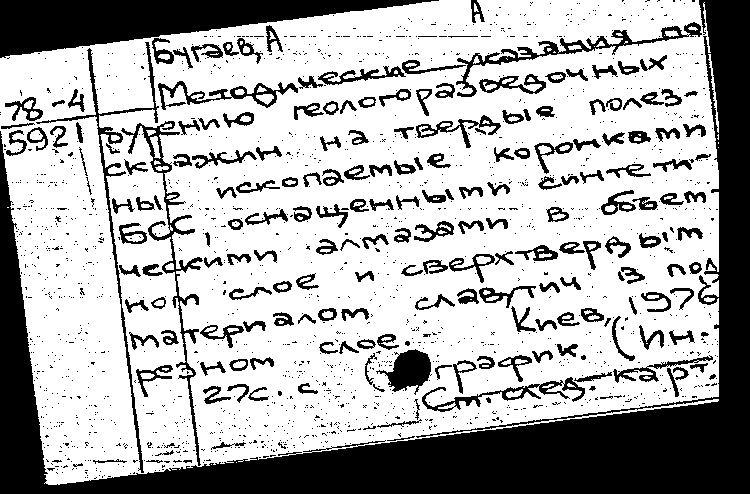 А
Бугаев, А
Методические указания по
78-4
бурению геологоразведочных
5921
скважин на твердые полез-
ные ископаемые коронками
БСС, оснащенными синтети-
ческими алмазами в объем-
ном слое и сверхтвердым
материалом славутич в под
резном слое. Киев, 1976
27с. с график. (Ин.-
См. след. карт.